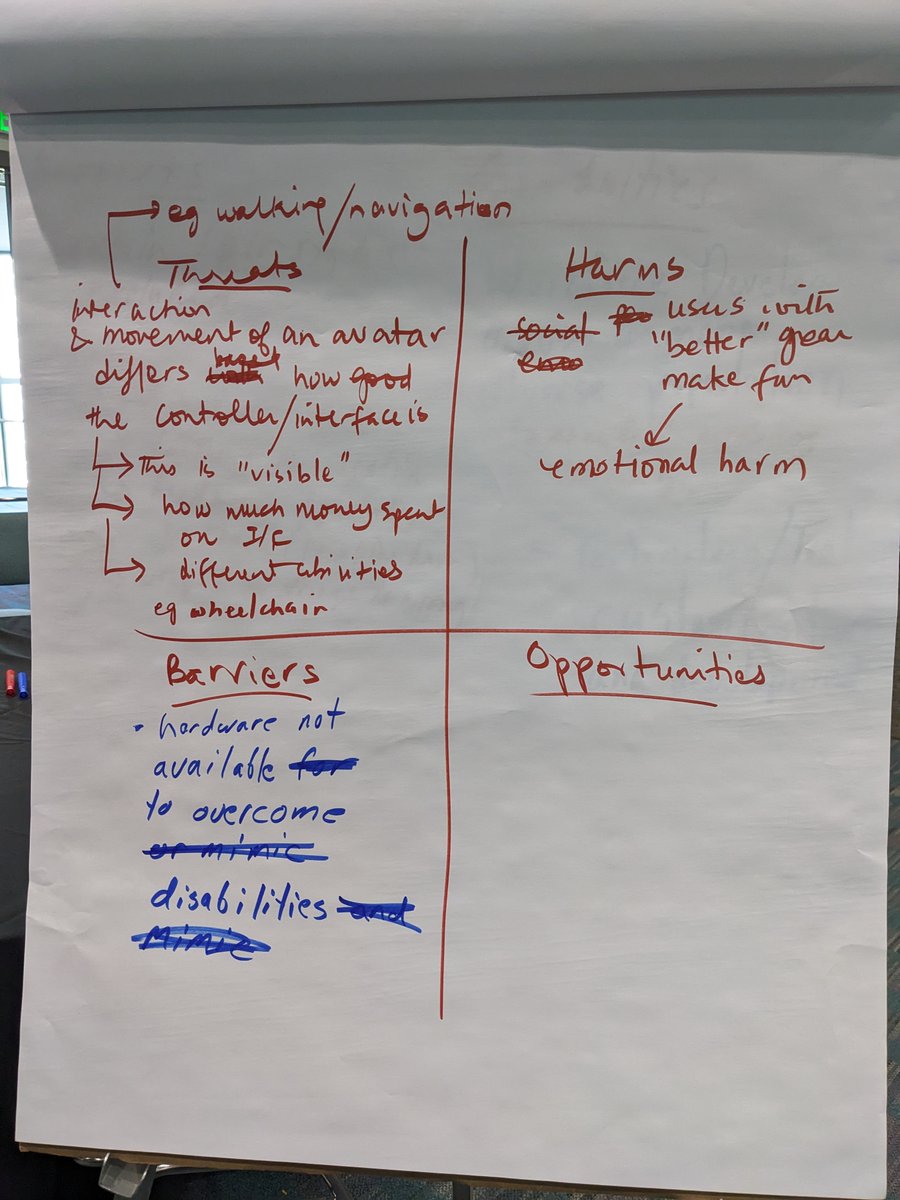 eg walking/navigation
Threats
interaction
& movement of an avatar
differs based how good
the controller/interface is
This is "visible"
how much money spent
on I/F
different abilities
eg wheelchair
Harms
social users with
"better" gear
make fun
emotional harm
Barriers
· hardware not
available for
to overcome
or mimic
disabilities and
mimic
Opportunities